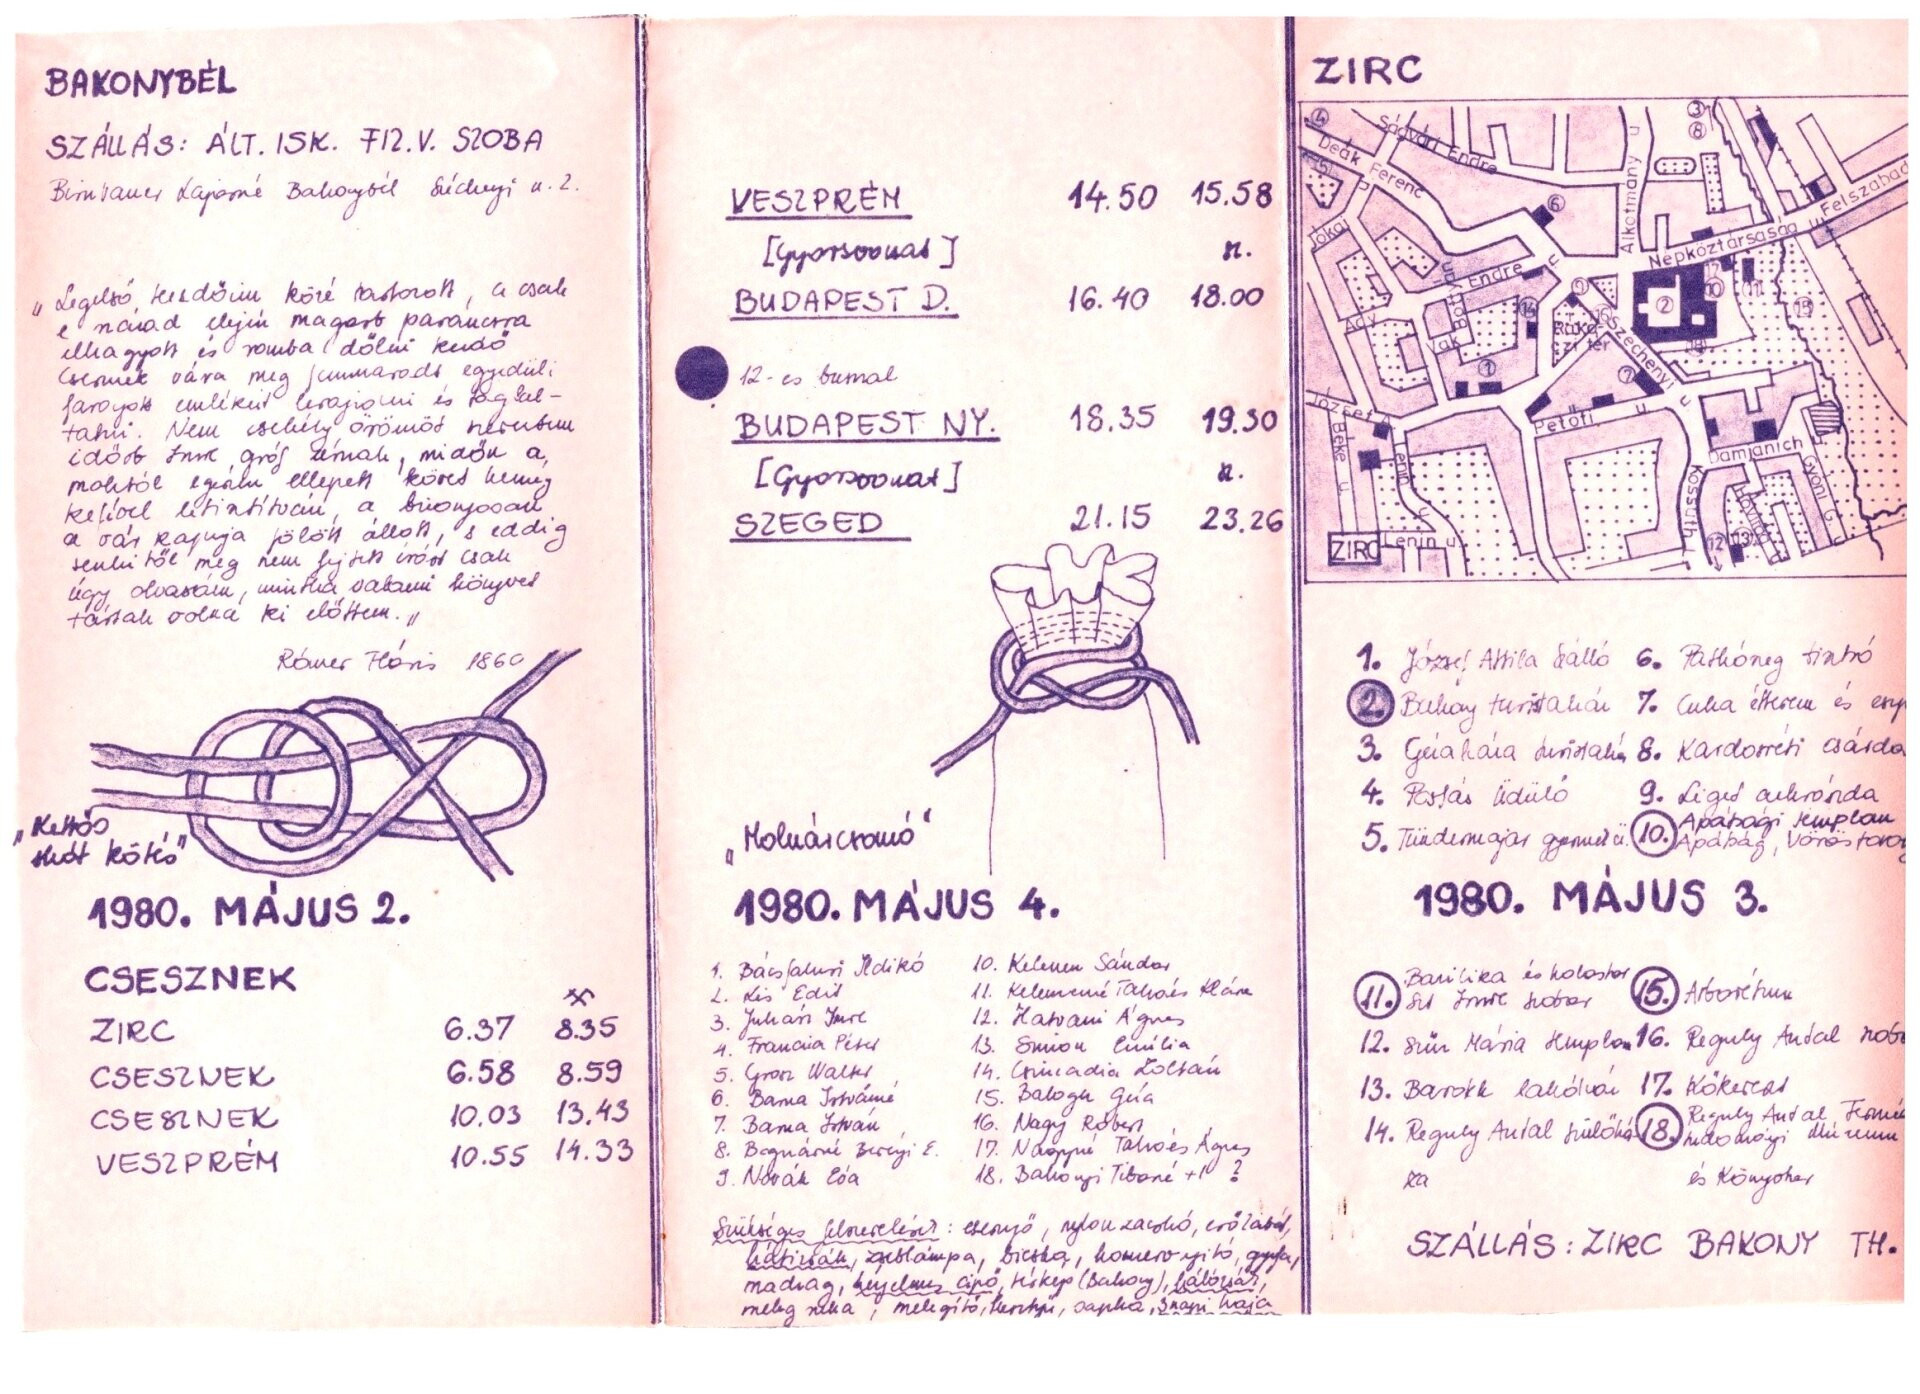 BAKONYBÉL
SZÁLLÁS: ÁLT. ISK. FIZ. V. SZOBA
Bakonybél Széchenyi u. 2.
"Legelső teendőim köré tartozott, a csak
e század elején magasb parancsra
elhagyott és romba dőlni kezdő
Csesznek vára még fennmaradt egyedüli
faragott emlékeit lerajzolni és
Nem csekély örömöt szereztem
idősb Imre gróf úrnak, midőn a
mohtól egészen ellepett követ kemény
kefével letisztítván, a bizonyosan
a vár kapuja fölött állott, s eddig
senkitől meg nem fejtett írást csak
úgy olvasám, mintha valami könyvet
tártak volna ki előttem."
Rómer Flóris 1860
"Kettős
kötés"
1980. MÁJUS 2.
CSESZNEK
ZIRC 6.37 8.35
CSESZNEK 6.58 8.59
CSESZNEK 10.03 13.43
VESZPRÉM 10.55 14.33
VESZPRÉM 14.50 15.58
[Gyorsvonat] n.
BUDAPEST D. 16.40 18.00
12-es busszal
BUDAPEST NY. 18.35 19.30
[Gyorsvonat] n.
SZEGED 21.15 23.26
"Molnárcsomó"
1980. MÁJUS 4.
1. Bácsfalusi Ildikó
2. Kis Edit
3. Juhász Imre
4. Francia Péter
5. Grosz Walter
6. Barna Istvánné
7. Barna István
8. Bognárné Berényi E.
9. Novák Éva
10. Kelemen Sándor
11. Kelemenné Takács Klára
12. Hatvani Ágnes
13. Simon Emília
14. Csincadia Zoltán
15. Balogh Géza
16. Nagy Róbert
17. Nagyné Takács Ágnes
18. Bakonyi Tiborné +1 ?
Szükséges felszerelések: esernyő, nylonzacskó,
hátizsák, zseblámpa, bicska, konzervnyitó, gyufa,
madzag, kényelmes cipő, térkép (Bakony), hálózsák,
meleg ruha, melegítő, kesztyű, sapka,
ZIRC
Ságvári Endre
Deák Ferenc
Alkotmány u
Népköztársaság u
Felszabad
Jókai
Ady Endre u
Rákó-
czi tér
Széchenyi u
József A
Petőfi u
Béke u
Lenin u
Kossuth
Damjanich
Gyóni G
ZIRC
Lenin u
1. József Attila szálló
2. Bakony turistaház
3. turistaház
4. Postás üdülő
5. Tündérmajor
6. Pásthóneg
7. Cuha étterem és
8. Kardosréti csárda
9. Liget cukrászda
10. Apátsági templom
Apátság, Vöröstorony
1980. MÁJUS 3.
11. Bazilika és kolostor
Szt Imre szobor
12. Szűz Mária templom
13. Barokk lakóház
14. Reguly Antal szülőhá
za
15. Arborétum
16. Reguly Antal szob
17. Kőkereszt
18. Reguly Antal Termé
tudományi Múzeum
és Könyvtár
SZÁLLÁS: ZIRC BAKONY TH.